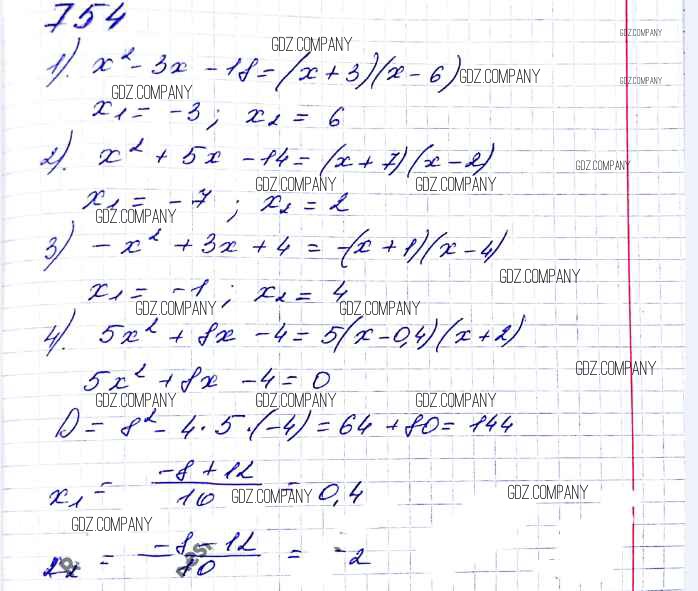 754
GDZ.COMPANY GDZ.COMPANY
1). x² - 3x - 18 = (x + 3)(x - 6) GDZ.COMPANY GDZ.COMPANY
GDZ.COMPANY
x₁ = -3; x₂ = 6
2). x² + 5x - 14 = (x + 7)(x - 2) GDZ.COMPANY
GDZ.COMPANY GDZ.COMPANY
x₁ = -7; x₂ = 2
GDZ.COMPANY
3) -x² + 3x + 4 = -(x + 1)(x - 4)
GDZ.COMPANY
x₁ = -1; x₂ = 4
GDZ.COMPANY GDZ.COMPANY
4). 5x² + 8x - 4 = 5(x - 0,4)(x + 2)
GDZ.COMPANY
5x² + 8x - 4 = 0
GDZ.COMPANY GDZ.COMPANY GDZ.COMPANY
D = 8² - 4 · 5 · (-4) = 64 + 80 = 144
x₁ = (-8 + 12)/10 = 0,4
GDZ.COMPANY GDZ.COMPANY
GDZ.COMPANY
x₂ = (-8 - 12)/10 = -2